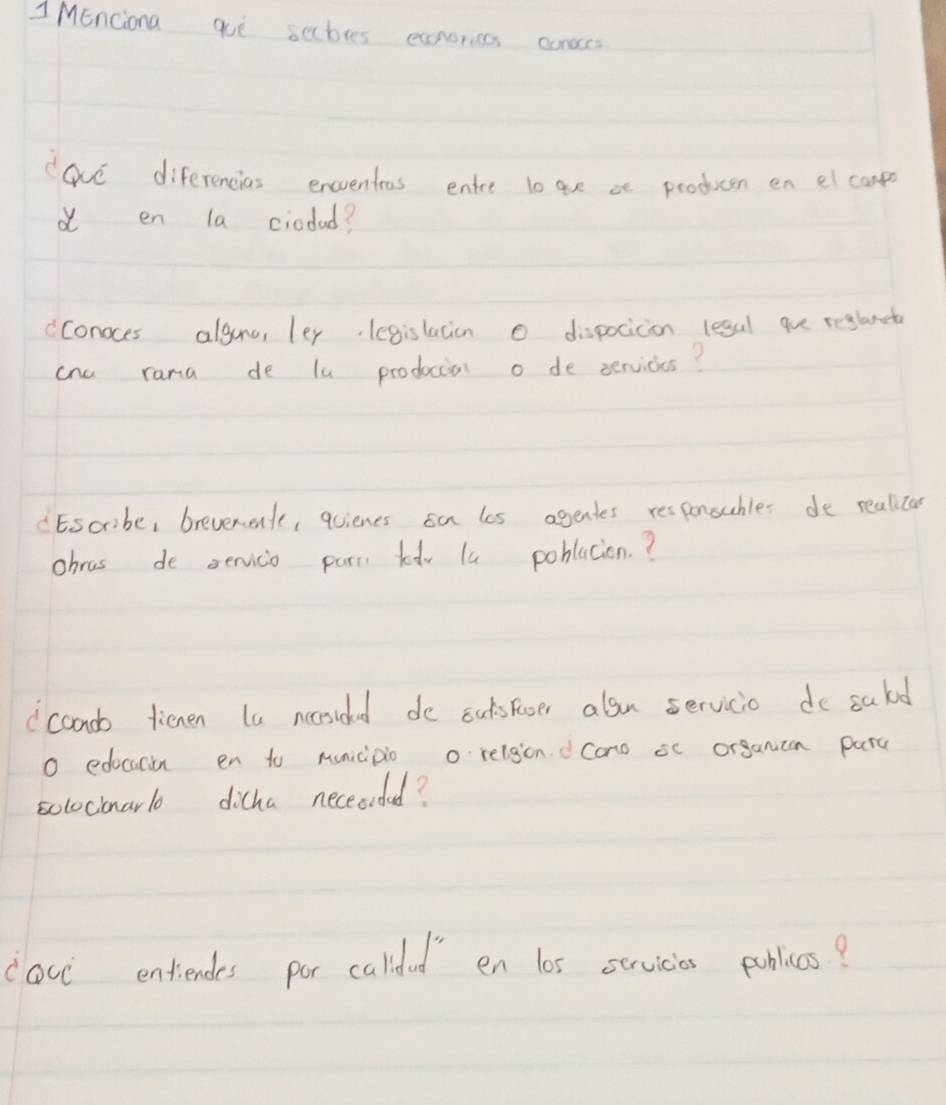 1 Menciona qué sectores economicos conoces
¿Qué diferencias encuentras entre lo que se producen en el campo
y en la ciodad?
¿conoces alguna, ley .legislacion o dispocicion legal que reglamenta
una rama de la produccion o de servicios?
¿Escribe, brevemente, quienes son los agentes responsables de realizar
obras de servicio para toda la poblacion.?
¿cuando tienen la necesidad de satisfacer algun servicio de salud
o educacion en tu municipio o religion. ¿Como se organizan para
solocionarlo dicha necesidad?
¿Qué entiendes por calidad" en los servicios publicos?